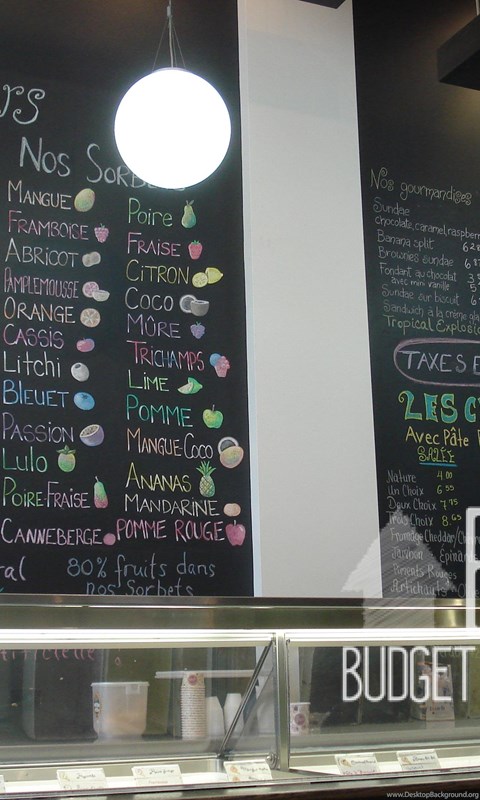 rs
Nos Sorbe
Mangue
Framboise
Abricot
Pamplemousse
Orange
Cassis
Litchi
Bleuet
Passion
Lulo
Poire Fraise
Canneberge
Poire
Fraise
Citron
Coco
Mûre
Trichamps
Lime
Pomme
Mangue Coco
Ananas
Mandarine
Pomme Rouge
ral
80% fruits dans
nos Sorbets
Nos gourmandises
Sundae
Chocolate, caramel, raspberr
Banana split
Brownies sundae
Fondant au chocolat
avec mini vanille
Sundae sur biscuit
Sandwich à la crème gla
Tropical Explosio
TAXES E
LES C
Avec Pâte
SALÉE
Nature 4.00
Un Choix 6.55
Deux Choix 7.75
Trois Choix 8.65
Fromage Cheddar/Chèvre
Jambon Épinards
Piments Rouges
Artichauts
BUDGET
www.DesktopBackground.org